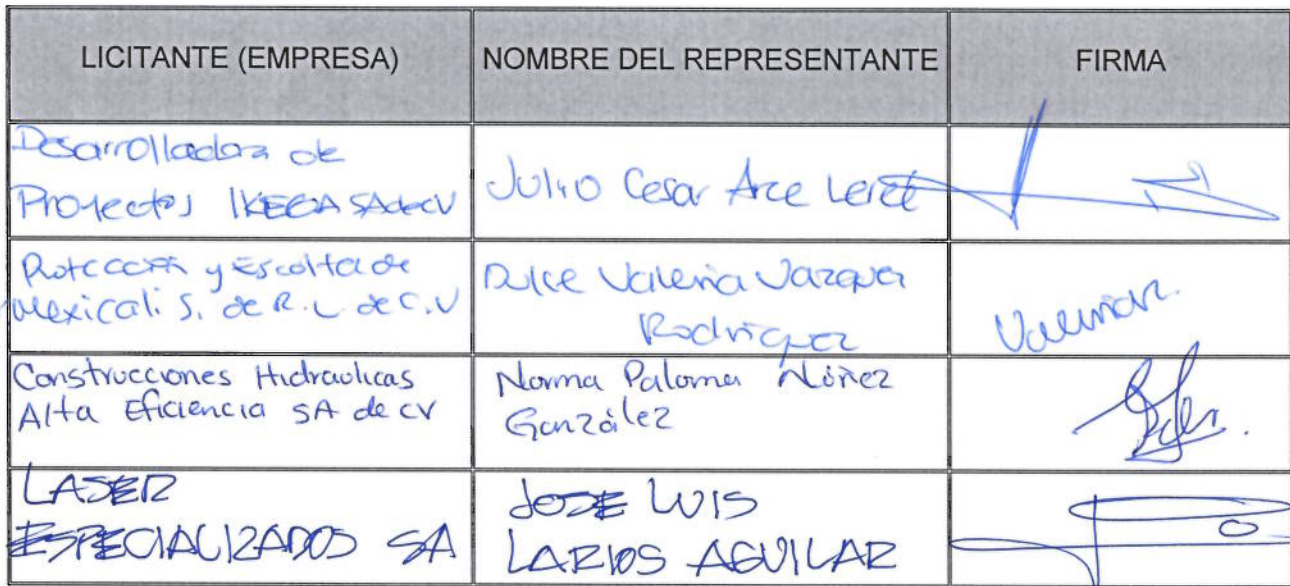 LICITANTE (EMPRESA) NOMBRE DEL REPRESENTANTE FIRMA
Desarrolladora de
Proyectos IKECA SA de CV
Julio Cesar Arce Leret
Proteccion y Escolta de
Mexicali S. de R.L. de C.V
Dulce Valeria Vazquez
Rodriguez
Construcciones Hidraulicas
Alta Eficiencia SA de CV
Norma Paloma Núñez
González
LASER
ESPECIALIZADOS SA
JOSE LUIS
LARIOS AGUILAR